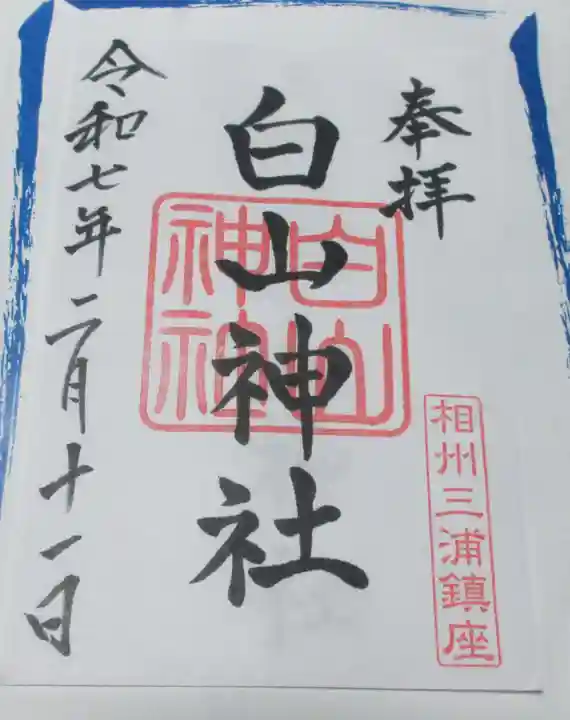 奉拝
相州三浦鎮座
白山神社
白山神社
令和七年二月十一日